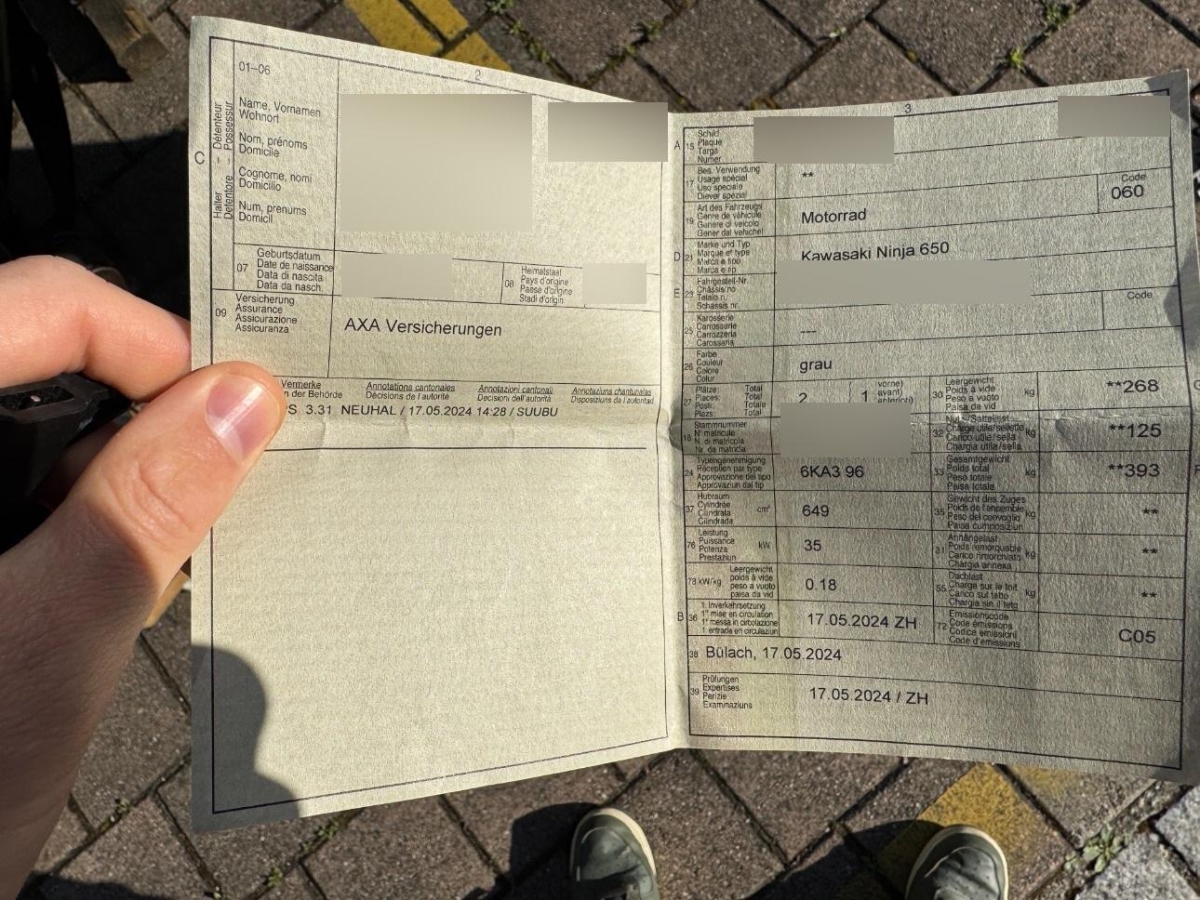 2
01-06
C
Halter – Détenteur
Detentore – Possessur
Name, Vornamen
Wohnort
Nom, prénoms
Domicile
Cognome, nomi
Domicilio
Num, prenums
Domicil
07
Geburtsdatum
Date de naissance
Data di nascita
Data da nasch.
08
Heimatstaat
Pays d'origine
Paese d'origine
Stadi d'origin
09
Versicherung
Assurance
Assicurazione
Assicuranza
AXA Versicherungen
Vermerke
n der Behörde
Annotations cantonales
Décisions de l'autorité
Annotazioni cantonali
Decisioni dell'autorità
Annotaziuns chantunalas
Disposiziuns da l'autoritad
S 3.31 NEUHAL / 17.05.2024 14:28 / SUUBU
3
A 15
Schild
Plaque
Targa
Numer
17
Bes. Verwendung
Usage spécial
Uso speciale
Diever spezial
**
19
Art des Fahrzeugs
Genre de véhicule
Genere di veicolo
Gener dal vehichel
Motorrad
Code
060
D 21
Marke und Typ
Marque et type
Marca e tipo
Marca e tip
Kawasaki Ninja 650
E 23
Fahrgestell-Nr.
Châssis no
Telaio n.
Schassis nr.
25
Karosserie
Carrosserie
Carrozzeria
Carossaria
---
Code
26
Farbe
Couleur
Colore
Colur
grau
27
Plätze: Total
Places: Total
Posti: Totale
Plazs: Total
2
1
vorne)
avant)
anteriori)
30
Leergewicht
Poids à vide
Peso a vuoto
Paisa da vid
kg
**268
18
Stammnummer
N° matricule
N. di matricola
Nr. da matricla
32
Nutz-/Sattellast
Charge utile/sellette
Carico utile/sella
Chargia utila/sella
kg
**125
24
Typengenehmigung
Réception par type
Approvazione del tipo
Approvaziun dal tip
6KA3 96
33
Gesamtgewicht
Poids total
Peso totale
Paisa totala
kg
**393
37
Hubraum
Cylindrée
Cilindrata
Cilindrada
cm³
649
35
Gewicht des Zuges
Poids de l'ensemble
Peso del convoglio
Paisa cumposiziun
kg
**
76
Leistung
Puissance
Potenza
Prestaziun
kW
35
31
Anhängelast
Poids remorquable
Carico rimorchiato
Chargia annexa
kg
**
78 kW/kg
Leergewicht
poids à vide
peso a vuoto
paisa da vid
0.18
55
Dachlast
Charge sur le toit
Carico sul tetto
Chargia sin il tetg
kg
**
B 36
1. Inverkehrsetzung
1re mise en circulation
1a messa in circolazione
1. entrada en circulaziun
17.05.2024 ZH
72
Emissionscode
Code émissions
Codice emissioni
Code d'emissiuns
C05
38
Bülach, 17.05.2024
39
Prüfungen
Expertises
Perizie
Examinaziuns
17.05.2024 / ZH